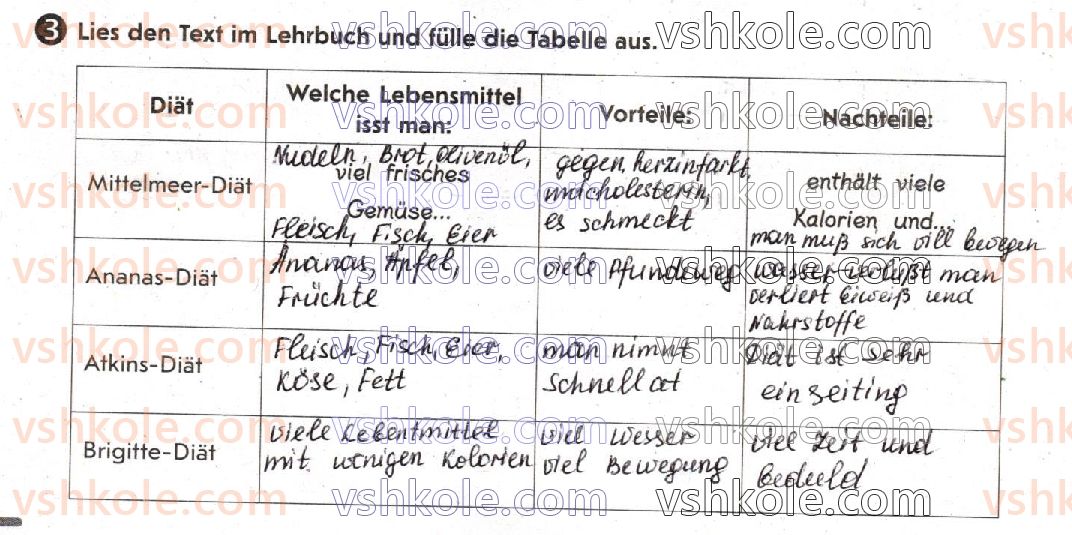 3 Lies den Text im Lehrbuch und fülle die Tabelle aus.
Diät
Welche Lebensmittel
isst man:
Vorteile:
Nachteile:
Mittelmeer-Diät
Nudeln, Brot, Olivenöl,
viel frisches
Gemüse...
Fleisch, Fisch, Eier
gegen herzinfarkt,
macholesterin,
es schmeckt
enthält viele
Kalorien und...
man muß sich vill bewegen
Ananas-Diät
Ananas, Äpfel,
Früchte
viele Pfundeweg
wasser verlußt man
verliert Eiweiß und
Nahrstoffe
Atkins-Diät
Fleisch, Fisch, Eier,
Köse, Fett
man nimnt
schnell at
Diät ist sehr
einzeiting
Brigitte-Diät
viele Lebentmittel
mit wenigen Kolorien
viel wesser
viel Bewegung
viel Zeit und
Beduld
vshkole.com